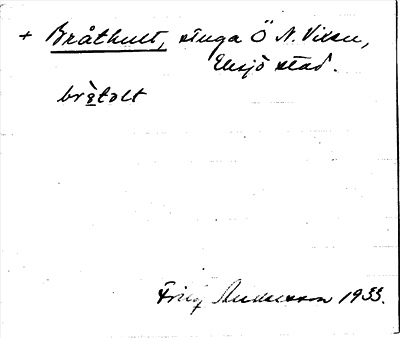 + Bråthult, stuga Ö N. Vixen,
Eksjö stad.
bråtolt
Fritz Andersson 1933.